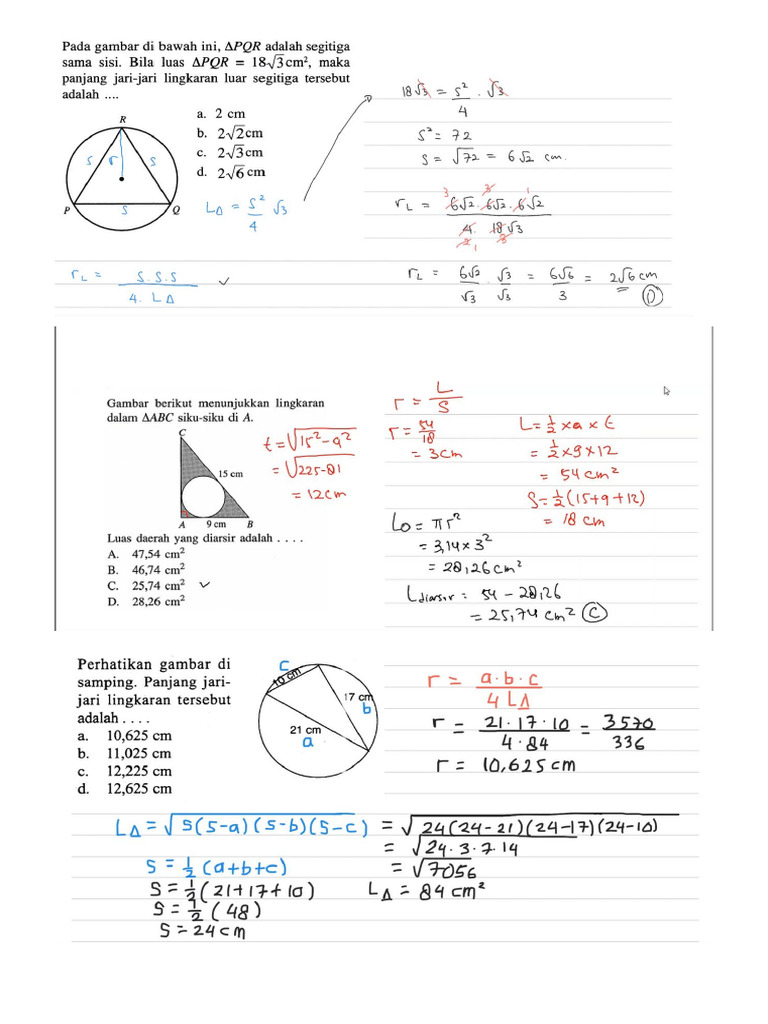 Pada gambar di bawah ini, ΔPQR adalah segitiga
sama sisi. Bila luas ΔPQR = 18√3 cm², maka
panjang jari-jari lingkaran luar segitiga tersebut
adalah ....
a. 2 cm
b. 2√2 cm
c. 2√3 cm
d. 2√6 cm
R
s r s
P s Q
LΔ = s²/4 √3
r_L = s.s.s / 4. LΔ ✓
18√3 = s²/4 . √3
s² = 72
s = √72 = 6√2 cm.
r_L = 6√2 . 6√2 . 6√2 / 4. 18√3
3 3 1
2 1 3
r_L = 6√2/√3 . √3/√3 = 6√6/3 = 2√6 cm
D
Gambar berikut menunjukkan lingkaran
dalam ΔABC siku-siku di A.
C
15 cm
A 9 cm B
t = √15²-9²
= √225-81
= 12cm
Luas daerah yang diarsir adalah . . . .
A. 47,54 cm²
B. 46,74 cm²
C. 25,74 cm² ✓
D. 28,26 cm²
r = L/S
r = 54/18
= 3cm
L = ½ x a x t
= ½ x 9 x 12
= 54 cm²
S = ½ (15+9+12)
= 18 cm
LO = πr²
= 3,14 x 3²
= 28,26 cm²
L diarsir = 54 - 28,26
= 25,74 cm² C
Perhatikan gambar di
samping. Panjang jari-
jari lingkaran tersebut
adalah . . . .
a. 10,625 cm
b. 11,025 cm
c. 12,225 cm
d. 12,625 cm
c
10 cm
17 cm
b
21 cm
a
r = a.b.c / 4 LΔ
r = 21.17.10 / 4.84 = 3570 / 336
r = 10,625 cm
LΔ = √S(S-a)(S-b)(S-c) = √24(24-21)(24-17)(24-10)
= √24.3.7.14
= √7056
LΔ = 84 cm²
S = ½ (a+b+c)
S = ½ (21+17+10)
S = ½ (48)
S = 24 cm